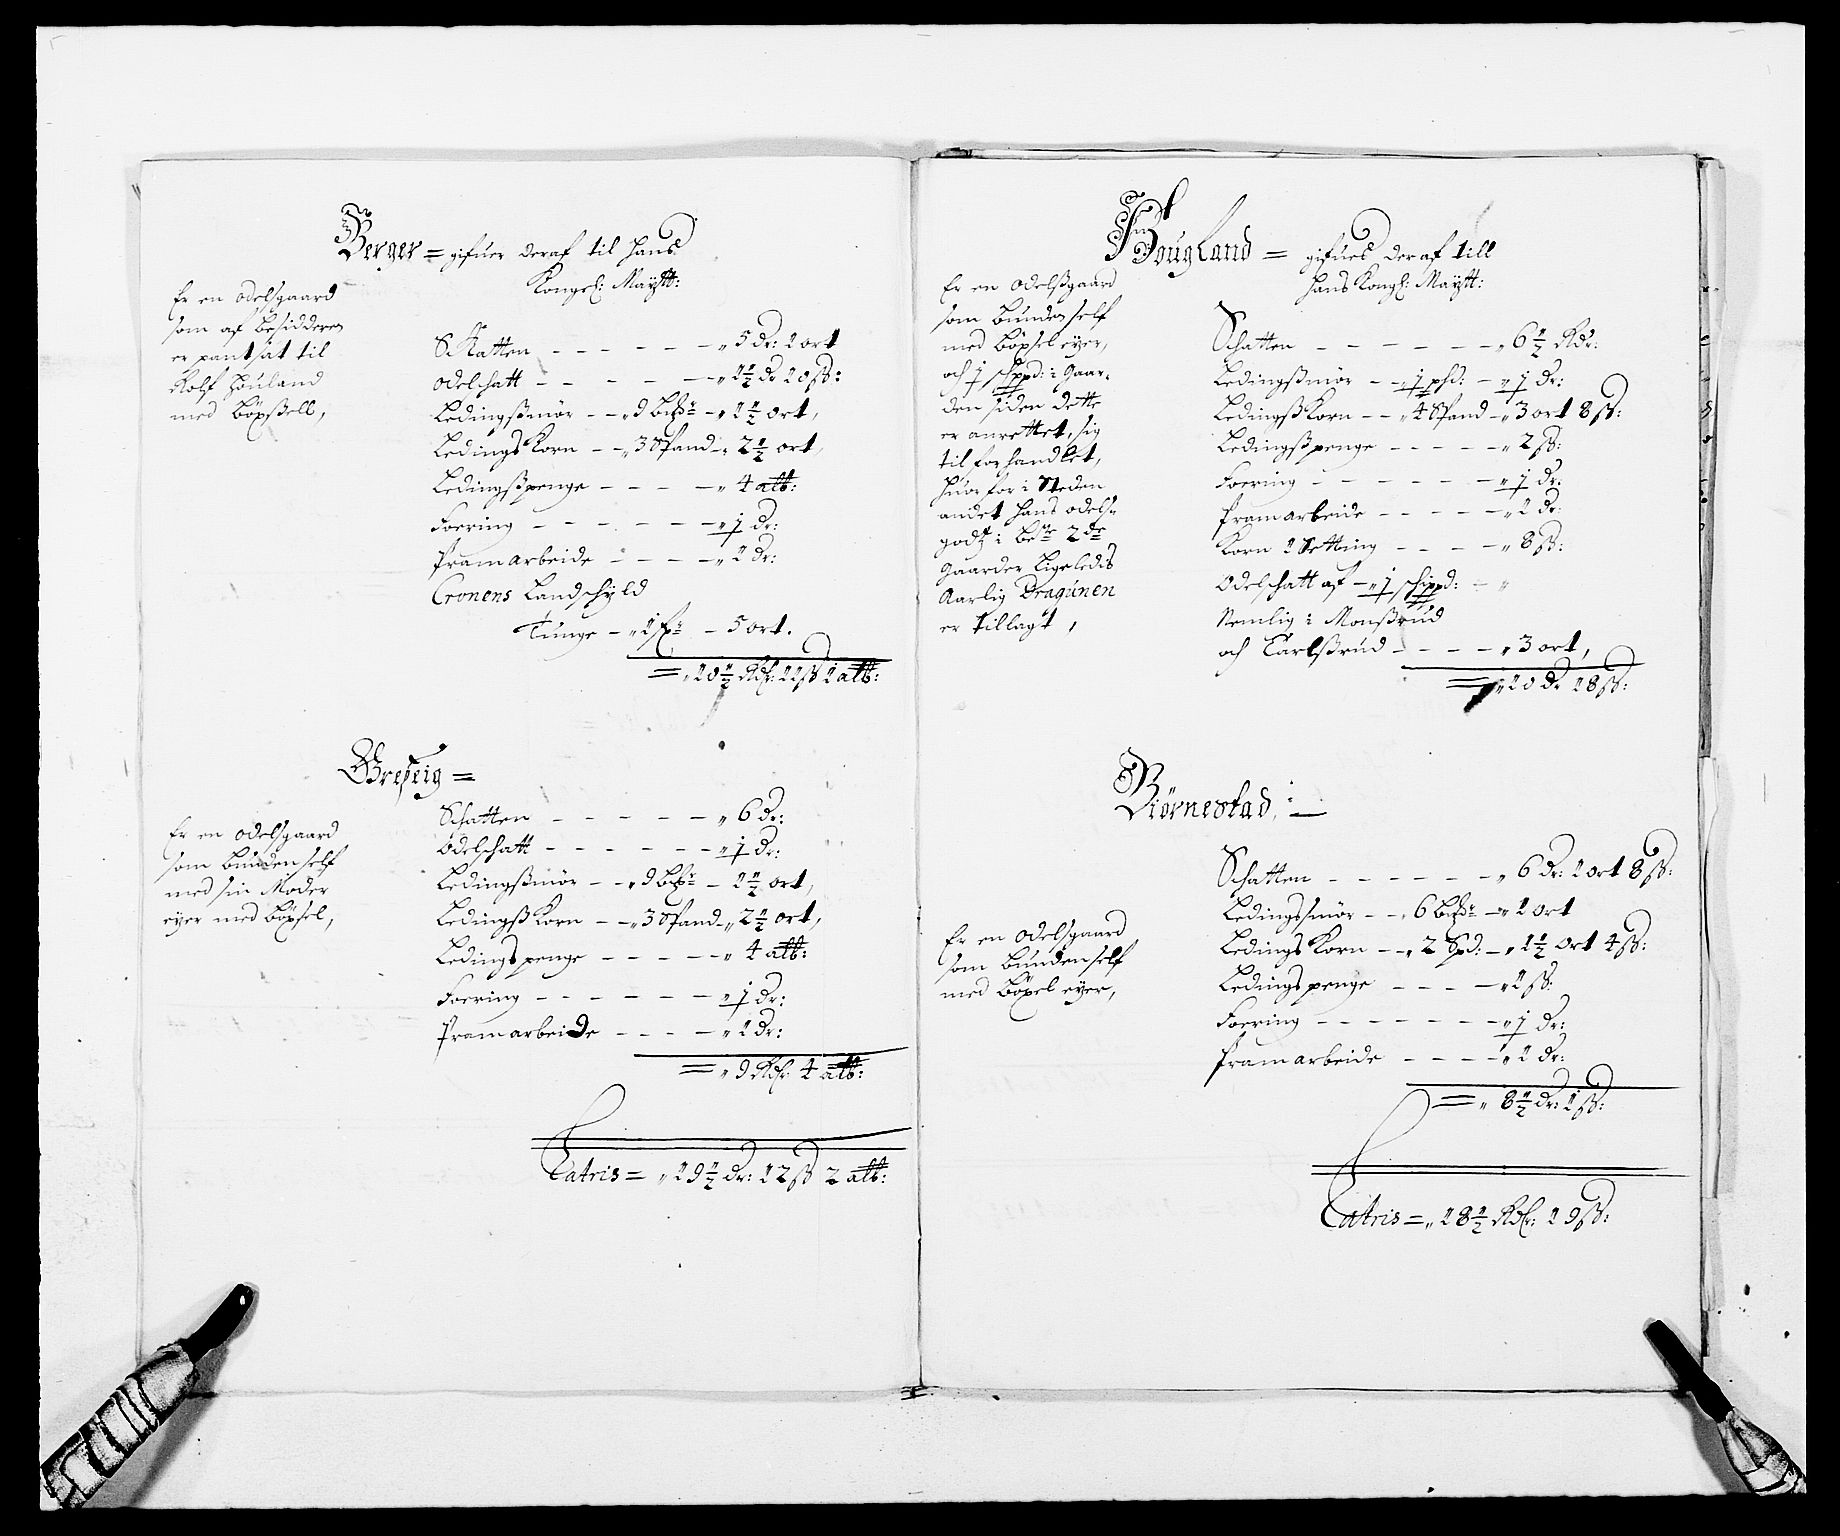 Berger = gifuer deraf til hans
Kongel: Maÿtt:
Er en odelsgaard
som af besidderen
er pantsat til
Rolf Houland
med böxsell,
Schatten - - - - - - „ 5 Dr: 1 ort
odelschatt - - - - - - „ 1½ Dr 20 ss:
Ledingssmör - - „ 9 „ 1½ ort,
Ledings Korn - - „ 3 Spand - „ 2½ ort,
Ledingsspenge - - - - - „ 4 alb:
Foering - - - - - - - „ j Dr:
Pramarbeide - - - - - „ 1 Dr:
Cronens Landschÿld
Tunge - „ - 5 ort.
= „ 10½ Rdr: 22 ss 2 alb:
Gresseig =
Er en odelsgaard
som bunden self
med sin Moder
eyer med böxsel,
Schatten - - - - - - „ 6 Dr:
odelschatt - - - - - - „ j Dr:
Ledingssmör - - „ 9 - 1½ ort,
Ledingss Korn - - „ 3 Spand - „ 2½ ort,
Ledings penge - - - - - „ 4 alb:
Foering - - - - - - - „ j Dr:
Pramarbeide - - - - - „ 1 Dr:
= „ 9 Rdr 4 alb:
Latris = „ 19½ Dr: 12 ss 2 alb:
Hougland = gifues deraf till
Hans Kongl: Maÿtt:
Er en odelssgaard
som bunden self
med böxsel eyer,
och j schippd: i Gaar-
den siden dette
er anrettet, sig
tilforhandlet,
huorfor i Steden
andet hans odels-
godtz i beste 2de
Gaarder Ligeledis
Aarlig Dragunen
er tillagt,
Schatten - - - - - - „ 6½ Rdr:
Ledingssmör - - „ j phd: - „ j Dr:
Ledingss Korn - - „ 4 Spand - „ 3 ort 8 ss:
Ledingsspenge - - - - - „ 2 ss:
Foering - - - - - - - „ j Dr:
Pramarbeide - - - - - „ 1 Dr:
Korn 1 Setting - - - - „ 8 ss:
Odelschatt af - „ j schippd: - „
Nemlig i Monssrud
och Carlssrud - - - - „ 3 ort,
= „ 10 Dr 18 ss:
Biörnestad: =
Er en odelsgaard
som bunden self
med böxel eyer,
Schatten - - - - - - „ 6 Dr: 1 ort 8 ss:
Ledingssmör - - „ 6 - „ 1 ort
Ledings Korn - - „ 2 Spd: - „ 1½ ort 4 ss:
Ledings penge - - - - „ 1 ss:
Foering - - - - - - - „ j Dr:
Pramarbeide - - - - „ 1 Dr:
= „ 8½ Dr: 1 ss:
Latris = „ 18½ Rdr: 19 ss: